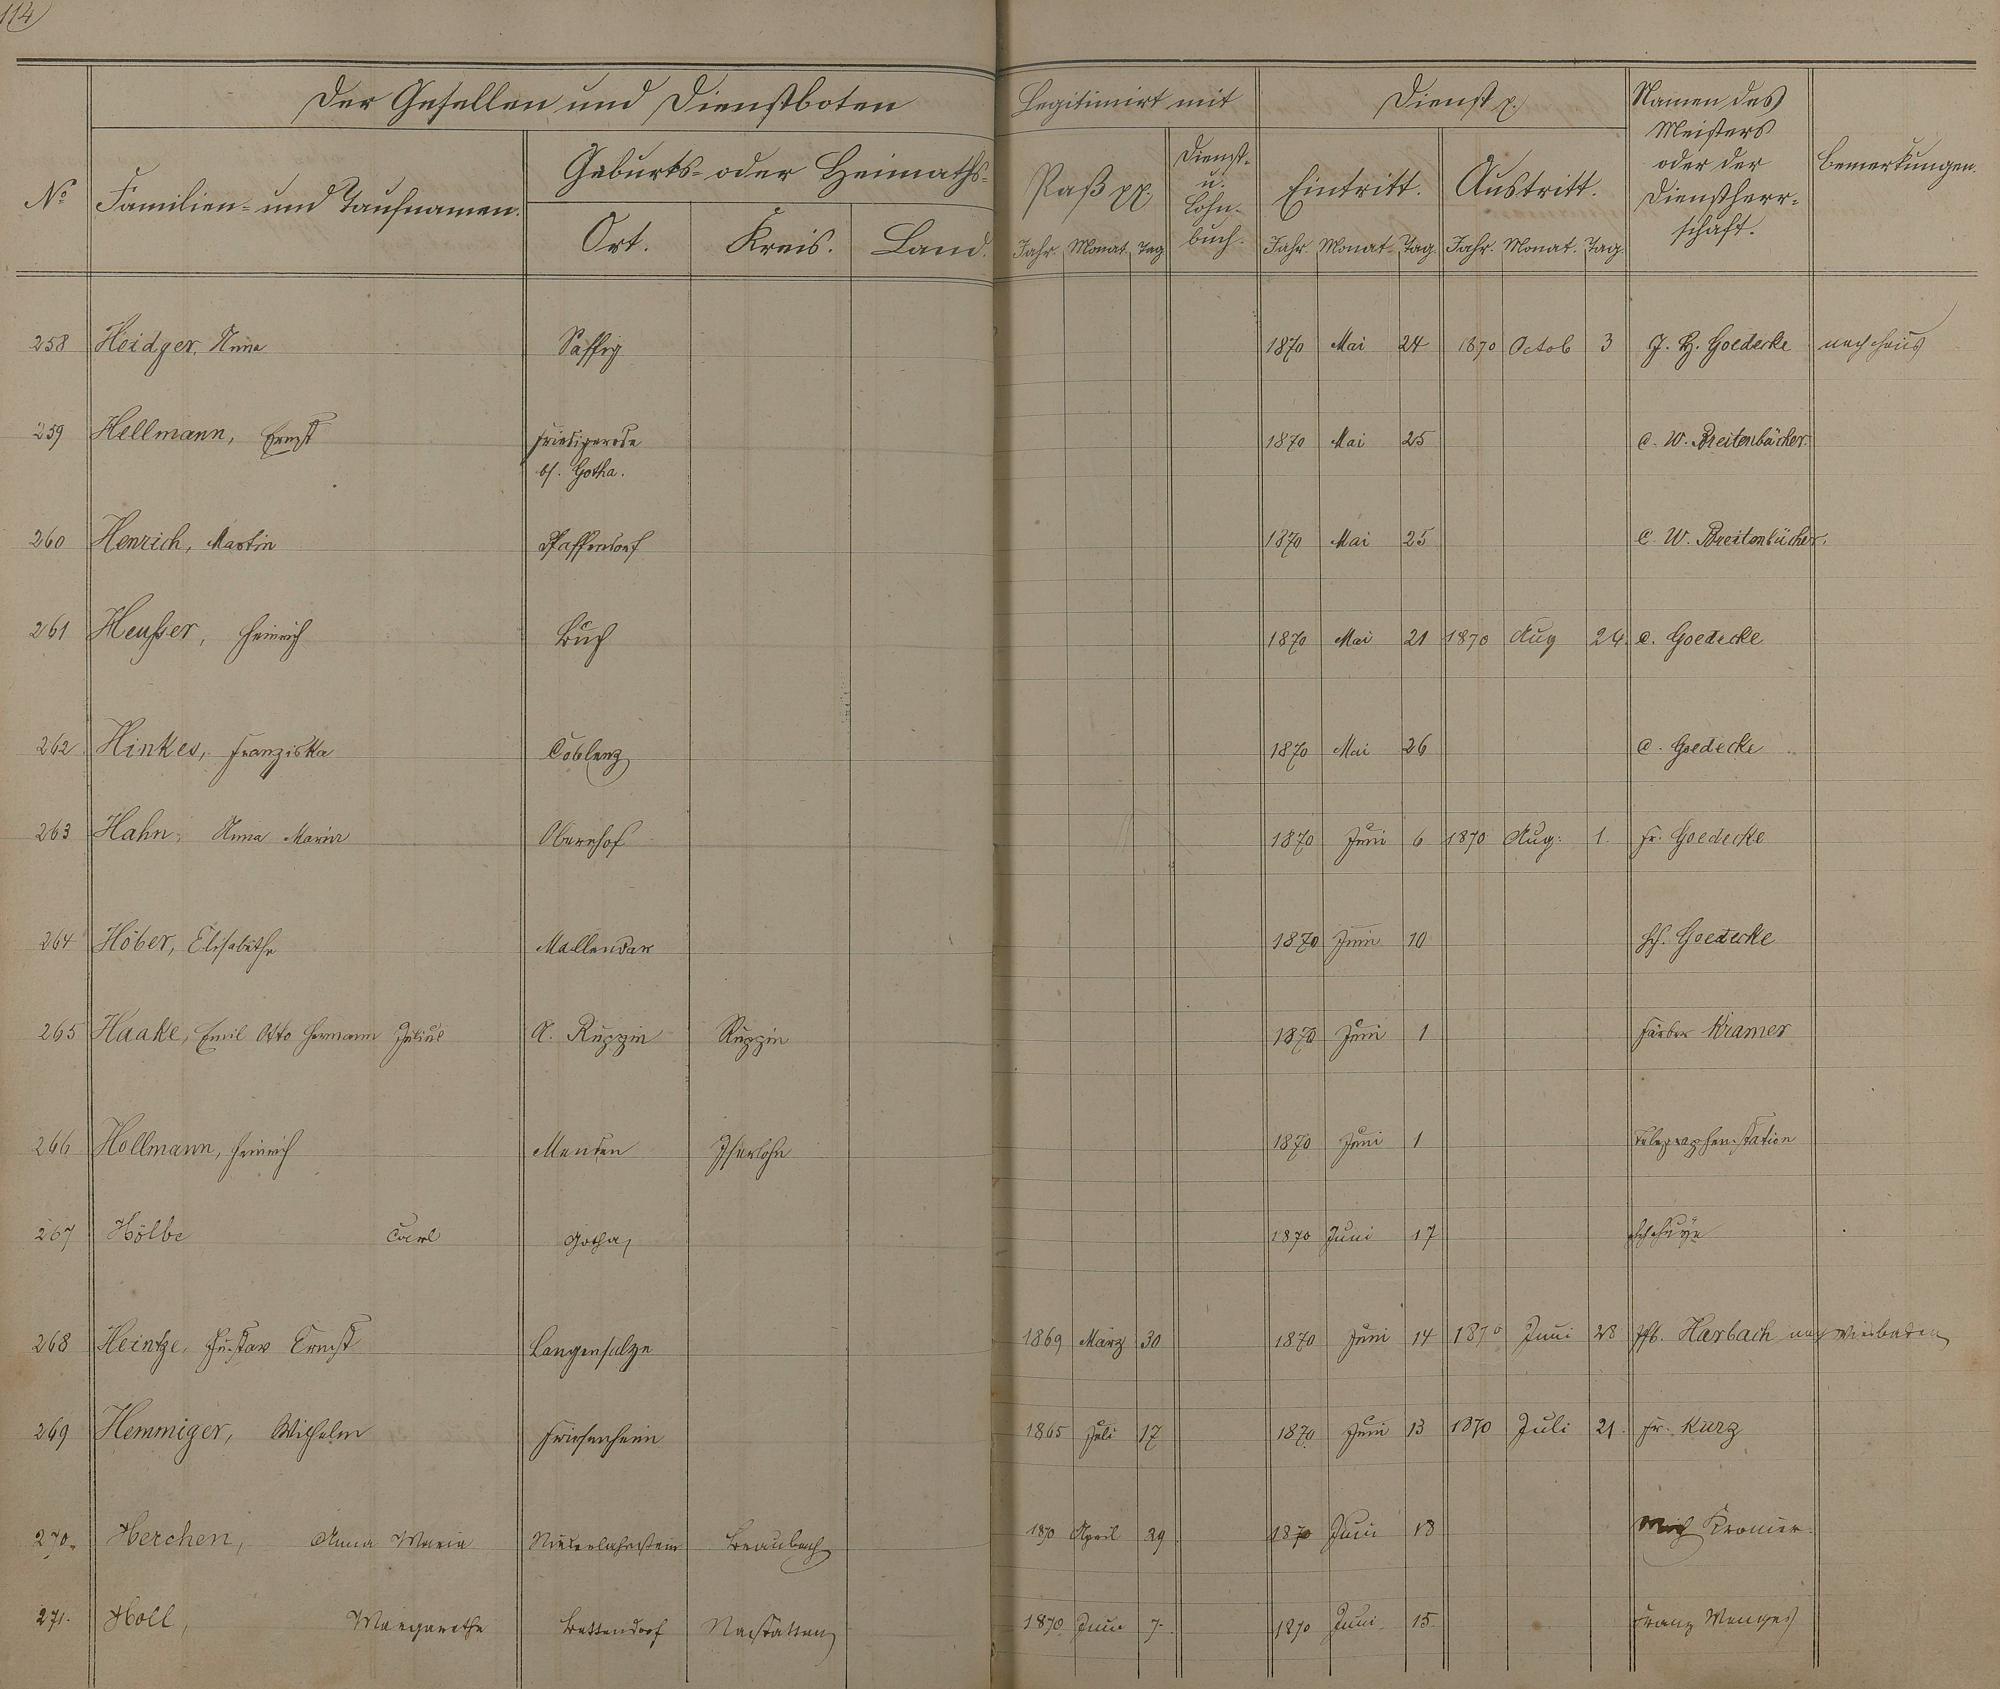 114
Der Gesellen und Dienstboten Legitimirt mit Dienst p.
Namen des
Meisters
oder der
Dienstherr-
schaft.
Bemerkungen.
No Familien- und Taufnamen. Geburts- oder Heimaths- Paß pp. Dienst-
u.
Lohn-
buch. Eintritt. Austritt.
Ort. Kreis. Land. Jahr. Monat. Tag Jahr. Monat. Tag. Jahr. Monat. Tag.
258 Heidger, Anna Saffig 1870 Mai 24 1870 Octob 3 J. H. Goedecke nach Haus
259 Hellmann, Ernst 1870 Mai 25 C. W. Breitenbücher.
bf. Gotha.
260 Henrich, Martin Pfaffendorf 1870 Mai 25 C. W. Breitenbücher.
261 Heußer, Heinrich Buch 1870 Mai 21 1870 Aug 24. C. Goedecke
262 Hinkes, Franziska Coblenz 1870 Mai 26 C. Goedecke
263 Hahn, Anna Maria Obernhof 1870 Juni 6 1870 Aug: 1. Fr. Goedecke
264 Höber, Elisabethe Mallendar 1870 Juni 10 Goedecke
265 Haake, Emil Otto Hermann Julius A. Ruppin Ruppin 1870 Juni 1 Färber Kramer
266 Hollmann, Heinrich Menden Iserlohn 1870 Juni 1 Telegraphenstation
267 Hölbe Carl Gotha, 1870 Juni 17
268 Heintze, Gustav Ernst Langensalza 1869 März 30 1870 Juni 14 1870 Juni 28 Harbach nach Wiesbaden
269 Hemmiger, Wilhelm Friesenheim 1865 Juli 17 1870 Juni 13 1870 Juli 21. Fr. Kurz
270. Herchen, Anna Maria Niederlahnstein Braubach 1870 April 29 1870 Juni 18 Kramer.
271. Holl, Margarethe Bettendorf Nastätten 1870 Juni 7. 1870 Juni 15. Franz Menges